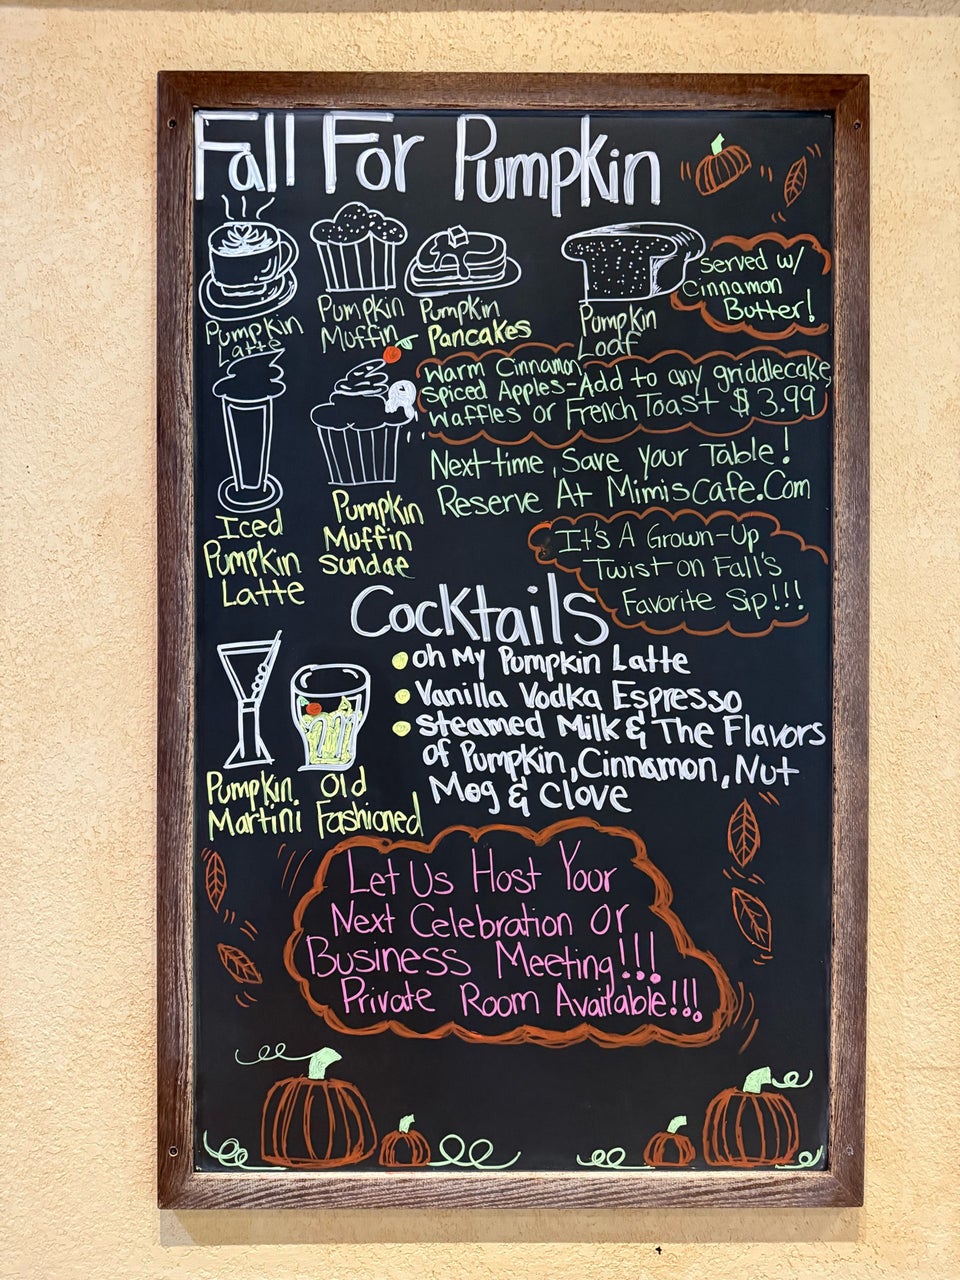 Fall For Pumpkin
Pumpkin
Latte
Pumpkin
Muffin
Pumpkin
Pancakes
Pumpkin
Loaf
Served w/
Cinnamon
Butter!
Warm Cinnamon
Spiced Apples-Add to any griddlecake,
Waffles or French Toast $3.99
Next time, Save Your Table!
Reserve At MimisCafe.Com
Iced
Pumpkin
Latte
Pumpkin
Muffin
Sundae
It's A Grown-Up
Twist on Fall's
Favorite Sip!!!
Cocktails
oh My Pumpkin Latte
Vanilla Vodka Espresso
Steamed Milk & The Flavors
of Pumpkin, Cinnamon, Nut
Meg & Clove
Pumpkin
Martini
Old
Fashioned
Let Us Host Your
Next Celebration Or
Business Meeting!!!
Private Room Available!!!